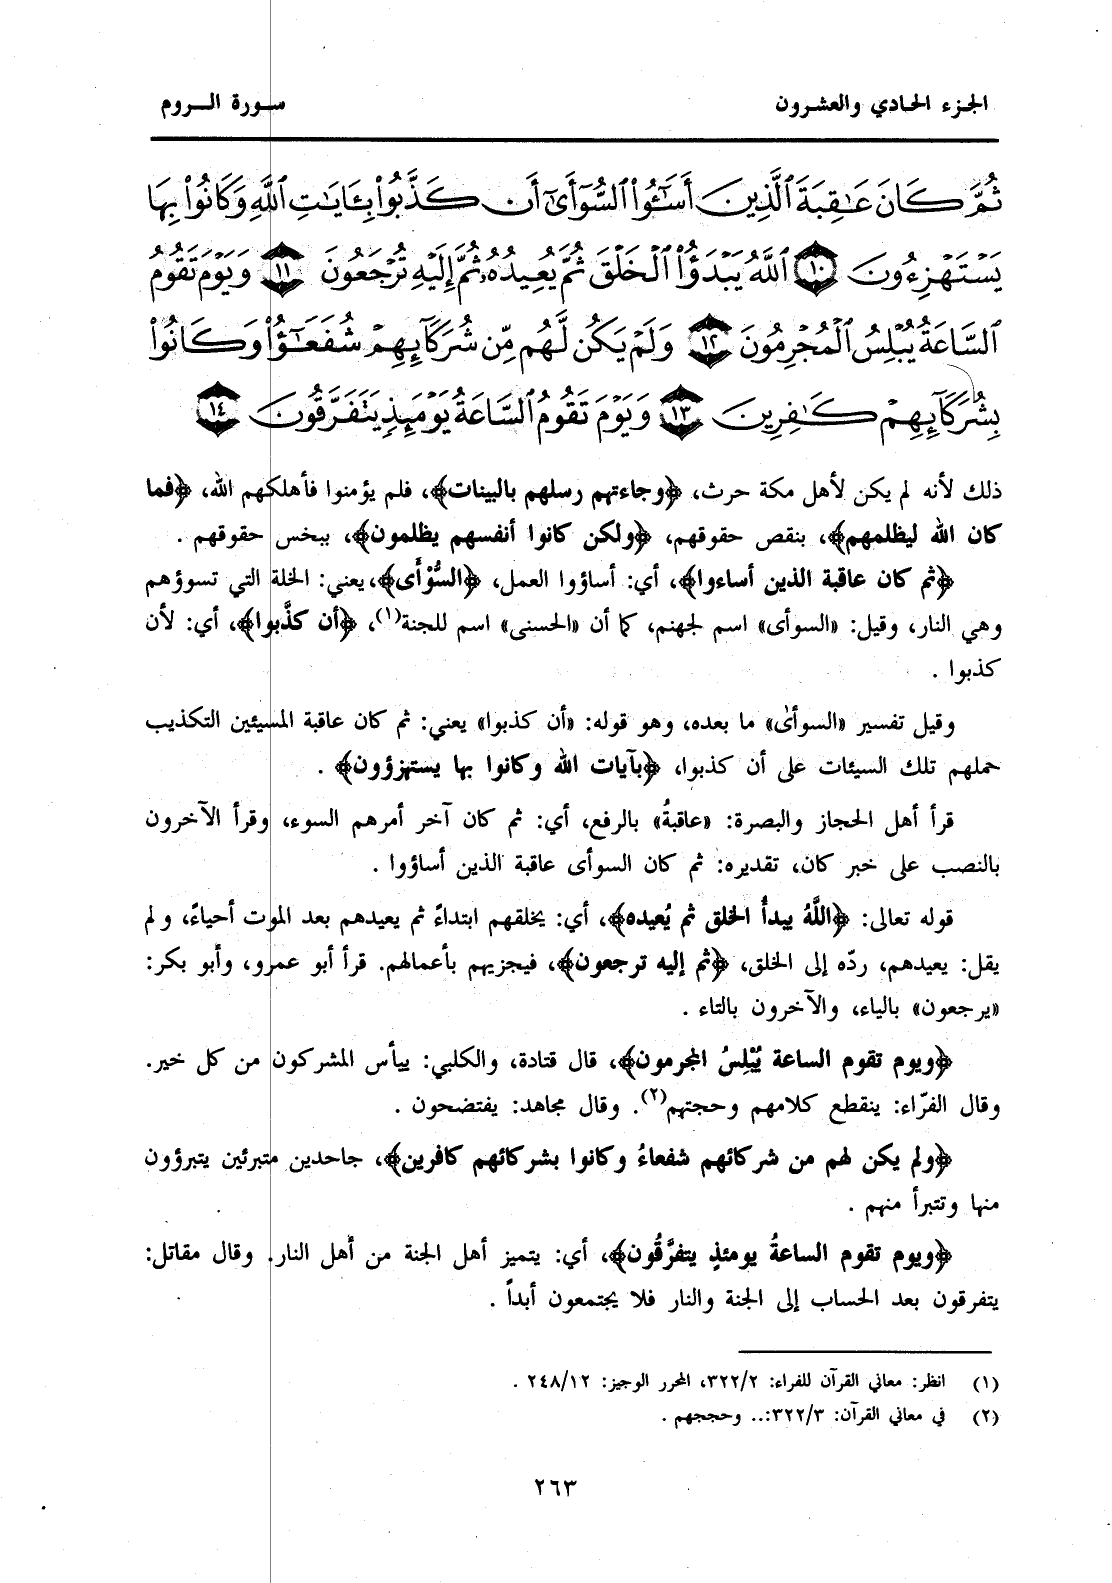 الجزء الحادي والعشرون
سورة الروم
ثُمَّ كَانَ عَـٰقِبَةَ ٱلَّذِينَ أَسَـٰٓـُٔوا۟ ٱلسُّوٓأَىٰٓ أَن كَذَّبُوا۟ بِـَٔايَـٰتِ ٱللَّهِ وَكَانُوا۟ بِهَا
يَسْتَهْزِءُونَ ١٠ ٱللَّهُ يَبْدَؤُا۟ ٱلْخَلْقَ ثُمَّ يُعِيدُهُۥ ثُمَّ إِلَيْهِ تُرْجَعُونَ ١١ وَيَوْمَ تَقُومُ
ٱلسَّاعَةُ يُبْلِسُ ٱلْمُجْرِمُونَ ١٢ وَلَمْ يَكُن لَّهُم مِّن شُرَكَآئِهِمْ شُفَعَـٰٓؤُا۟ وَكَانُوا۟
بِشُرَكَآئِهِمْ كَـٰفِرِينَ ١٣ وَيَوْمَ تَقُومُ ٱلسَّاعَةُ يَوْمَئِذٍ يَتَفَرَّقُونَ ١٤
ذلك لأنه لم يكن لأهل مكة حرث، ﴿وجاءتهم رسلهم بالبينات﴾، فلم يؤمنوا فأهلكهم الله، ﴿فما
كان الله ليظلمهم﴾، بنقص حقوقهم، ﴿ولكن كانوا أنفسهم يظلمون﴾، ببخس حقوقهم .
﴿ثم كان عاقبة الذين أساءوا﴾، أي: أساؤوا العمل، ﴿السُّوْأَى﴾، يعني: الخلة التي تسوؤهم
وهي النار، وقيل: «السوأى» اسم لجهنم، كما أن «الحسنى» اسم للجنة(١)، ﴿أن كذَّبوا﴾، أي: لأن
كذبوا .
وقيل تفسير «السوأىٰ» ما بعده، وهو قوله: «أن كذبوا» يعني: ثم كان عاقبة المسيئين التكذيب
حملهم تلك السيئات على أن كذبوا، ﴿بآيات الله وكانوا بها يستهزؤون﴾ .
قرأ أهل الحجاز والبصرة: «عاقبةُ» بالرفع، أي: ثم كان آخر أمرهم السوء، وقرأ الآخرون
بالنصب على خبر كان، تقديره: ثم كان السوأى عاقبة الذين أساؤوا .
قوله تعالى: ﴿اللَّهُ يبدأُ الخلق ثم يُعيده﴾، أي: يخلقهم ابتداءً ثم يعيدهم بعد الموت أحياءً، و لم
يقل: يعيدهم، ردّه إلى الخلق، ﴿ثم إليه ترجعون﴾، فيجزيهم بأعمالهم. قرأ أبو عمرو، وأبو بكر:
«يرجعون» بالياء، والآخرون بالتاء .
﴿ويوم تقوم الساعة يُبْلِسُ المجرمون﴾، قال قتادة، والكلبي: ييأس المشركون من كل خير.
وقال الفرّاء: ينقطع كلامهم وحجتهم(٢). وقال مجاهد: يفتضحون .
﴿ولم يكن لهم من شركائهم شفعاءُ وكانوا بشركائهم كافرين﴾، جاحدين متبرئين يتبرؤون
منها وتتبرأ منهم .
﴿ويوم تقوم الساعةُ يومئذٍ يتفرَّقُون﴾، أي: يتميز أهل الجنة من أهل النار. وقال مقاتل:
يتفرقون بعد الحساب إلى الجنة والنار فلا يجتمعون أبداً .
(١) انظر: معاني القرآن للفراء: ٣٢٢/٢، المحرر الوجيز: ٢٤٨/١٢ .
(٢) في معاني القرآن: ٣٢٢/٣:.. وحججهم .
٢٦٣